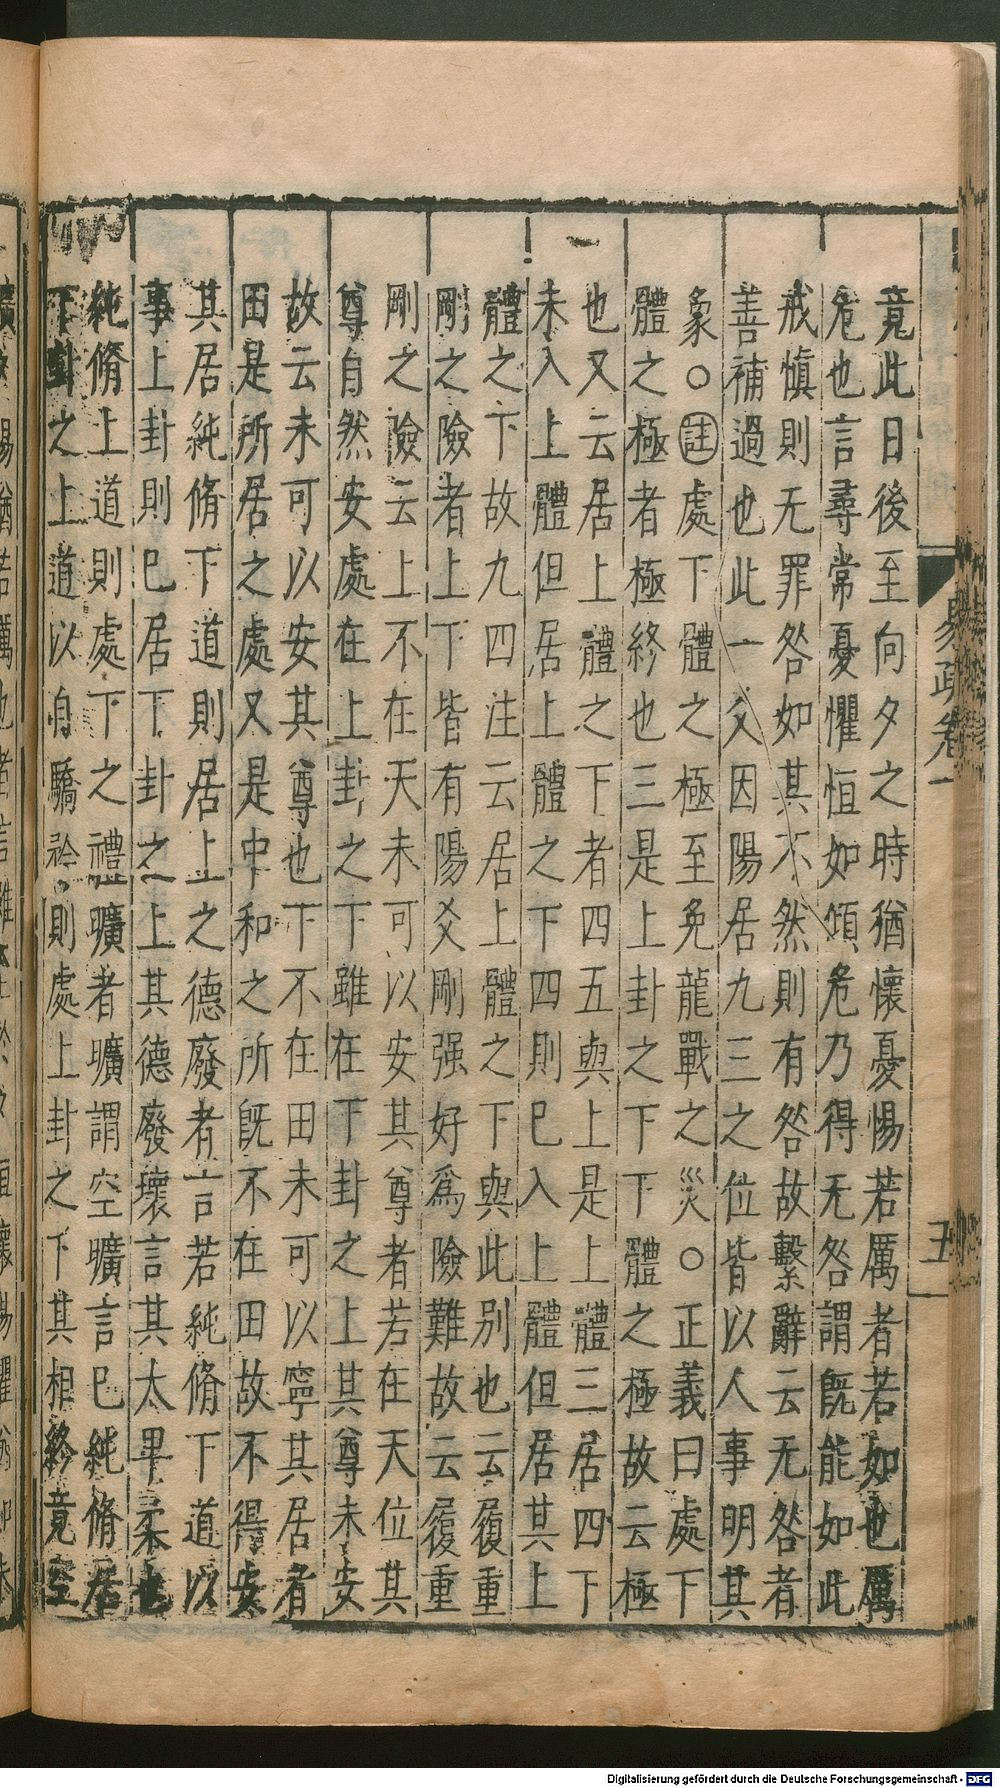 竟此日後至向夕之時猶懷憂惕若厲者若如也厲
危也言尋常憂懼恒如傾危乃得无咎謂旣能如此
戒愼則无罪咎如其不然則有咎故繫辭云无咎者
善補過也此一爻因陽居九三之位皆以人事明其
象○註處下體之極至免龍戰之災○正義曰處下
體之極者極終也三是上卦之下下體之極故云極
也又云居上體之下者四五與上是上體三居四下
未入上體但居上體之下四則已入上體但居其上
體之下故九四注云居上體之下與此别也云履重
剛之險者上下皆有陽爻剛强好爲險難故云履重
剛之險云上不在天未可以安其尊者若在天位其
尊自然安處在上卦之下雖在下卦之上其尊未安
故云未可以安其尊也下不在田未可以寧其居者
田是所居之處又是中和之所旣不在田故不得安
其居純脩下道則居上之德廢者言若純脩下道以
事上卦則巳居下卦之上其德廢壞言其太卑柔也
純脩上道則處下之禮曠者曠謂空曠言巳純脩居
下卦之上道以自驕矜則處上卦之下其相終竟空
易疏卷一
五
Digitalisierung gefördert durch die Deutsche Forschungsgemeinschaft - DFG